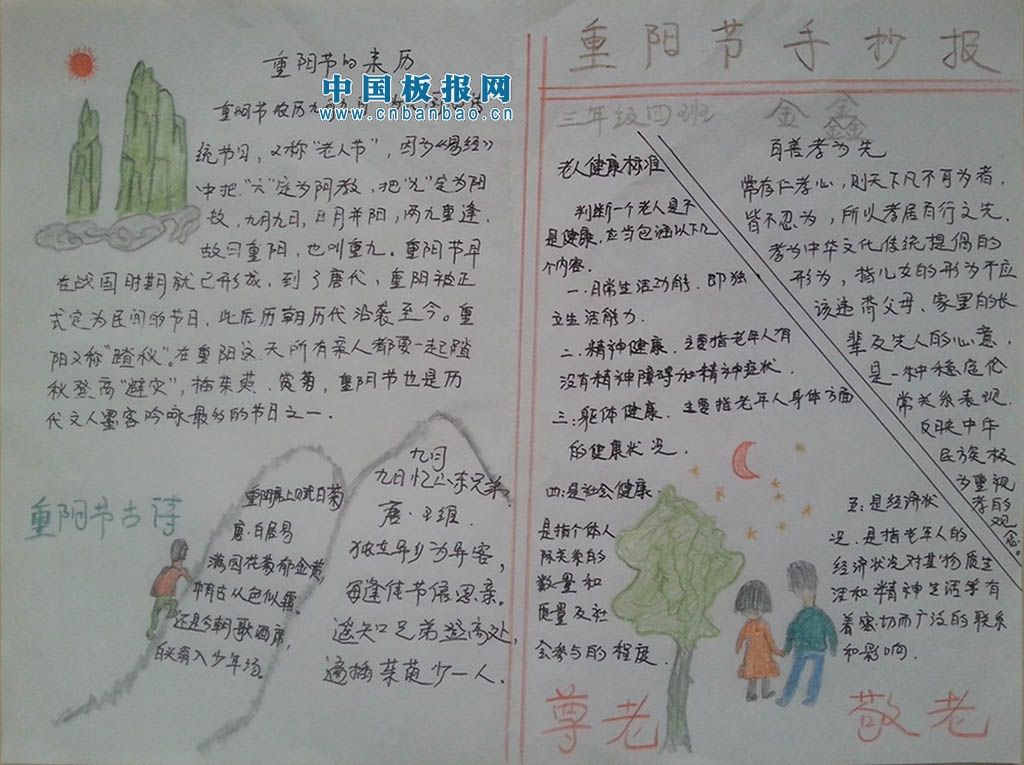 重阳节手抄报
三年级四班 金鑫
重阳节的来历
中国板报网
www.cnbanbao.cn
重阳节农历九月
统节日，又称“老人节”，因为《易经》
中把“六”定为阴数，把“九”定为阳
故，九月九日，日月并阳，两九重逢，
故曰重阳，也叫重九。重阳节早
在战国时期就已形成，到了唐代，重阳被正
式定为民间的节日，此后历朝历代沿袭至今。重
阳又称“踏秋”。在重阳这天所有亲人都要一起踏
秋登高“避灾”，插茱萸、赏菊，重阳节也是历
代文人墨客吟咏最多的节日之一．
重阳节古诗
重阳席上赋白菊
唐·白居易
满园花菊郁金黄，
中有古从色似霜。
还是今朝歌酒席，
白头翁入少年场。
九月
九日忆山东兄弟
唐·王维
独在异乡为异客，
每逢佳节倍思亲。
遥知兄弟登高处，
遍插茱萸少一人．
老人健康标准
判断一个老人是不
是健康，应当包涵以下几
个内容．
一．日常生活功能．即独
立生活能力．
二．精神健康．主要指老年人有
没有精神障碍和精神症状．
三：躯体健康．主要指老年人身体方面
的健康状况．
四：是社会健康．
是指个体人
际关系的
数量和
质量及社
会参与的程度．
五：是经济状
况．是指老年人的
经济状况对其物质生
活和精神生活学有
着密切而广泛的联系
和影响．
百善孝为先
常存仁孝心，则天下凡不可为者．
皆不忍为，所以孝居百行之先．
孝为中华文化传统提倡的
形为，指儿女的形为不应
该违背父母、家里的长
辈及先人的心意，
是一种稳定伦
常关系表现．
反映中华
民族极
为重视
孝的
观
念。
尊老
敬老